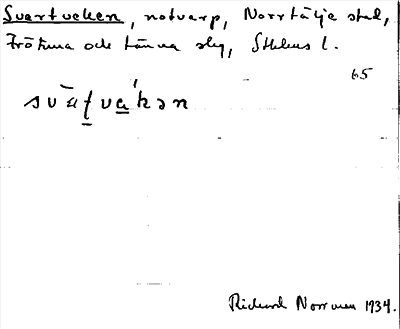 Svartveken, notvarp, Norrtälje stad,
Frötuna och Länna slg, Sthlms l.
65
svát̠va̠'kən
Richard Norrman 1934.